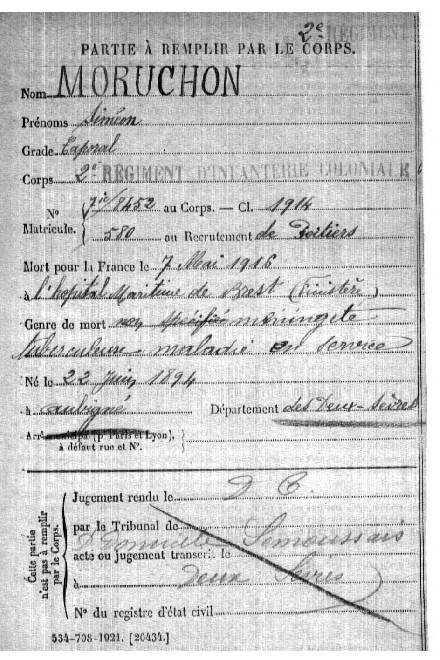 2e REGIMENT
PARTIE À REMPLIR PAR LE CORPS.
Nom MORUCHON
Prénoms Siméon
Grade Caporal
Corps 2e REGIMENT D'INFANTERIE COLONIALE
No Matricule. 8452 au Corps. — Cl. 1914
580 au Recrutement de Poitiers
Mort pour la France le 7 Mai 1916
à l'Hôpital Maritime de Brest (Finistère)
Genre de mort non spécifié méningite
tuberculeuse maladie en service
Né le 22 Juin 1894
à Aubigné Département des Deux-Sèvres
Arrt municipal (p. Paris et Lyon),
à défaut rue et No.
Cette partie
n'est pas à remplir
par le Corps.
Jugement rendu le D C.
par le Tribunal de
acte ou jugement transcrit le Lemoussais
à Deux Sèvres
No du registre d'état civil
534-708-1921. [26434.]